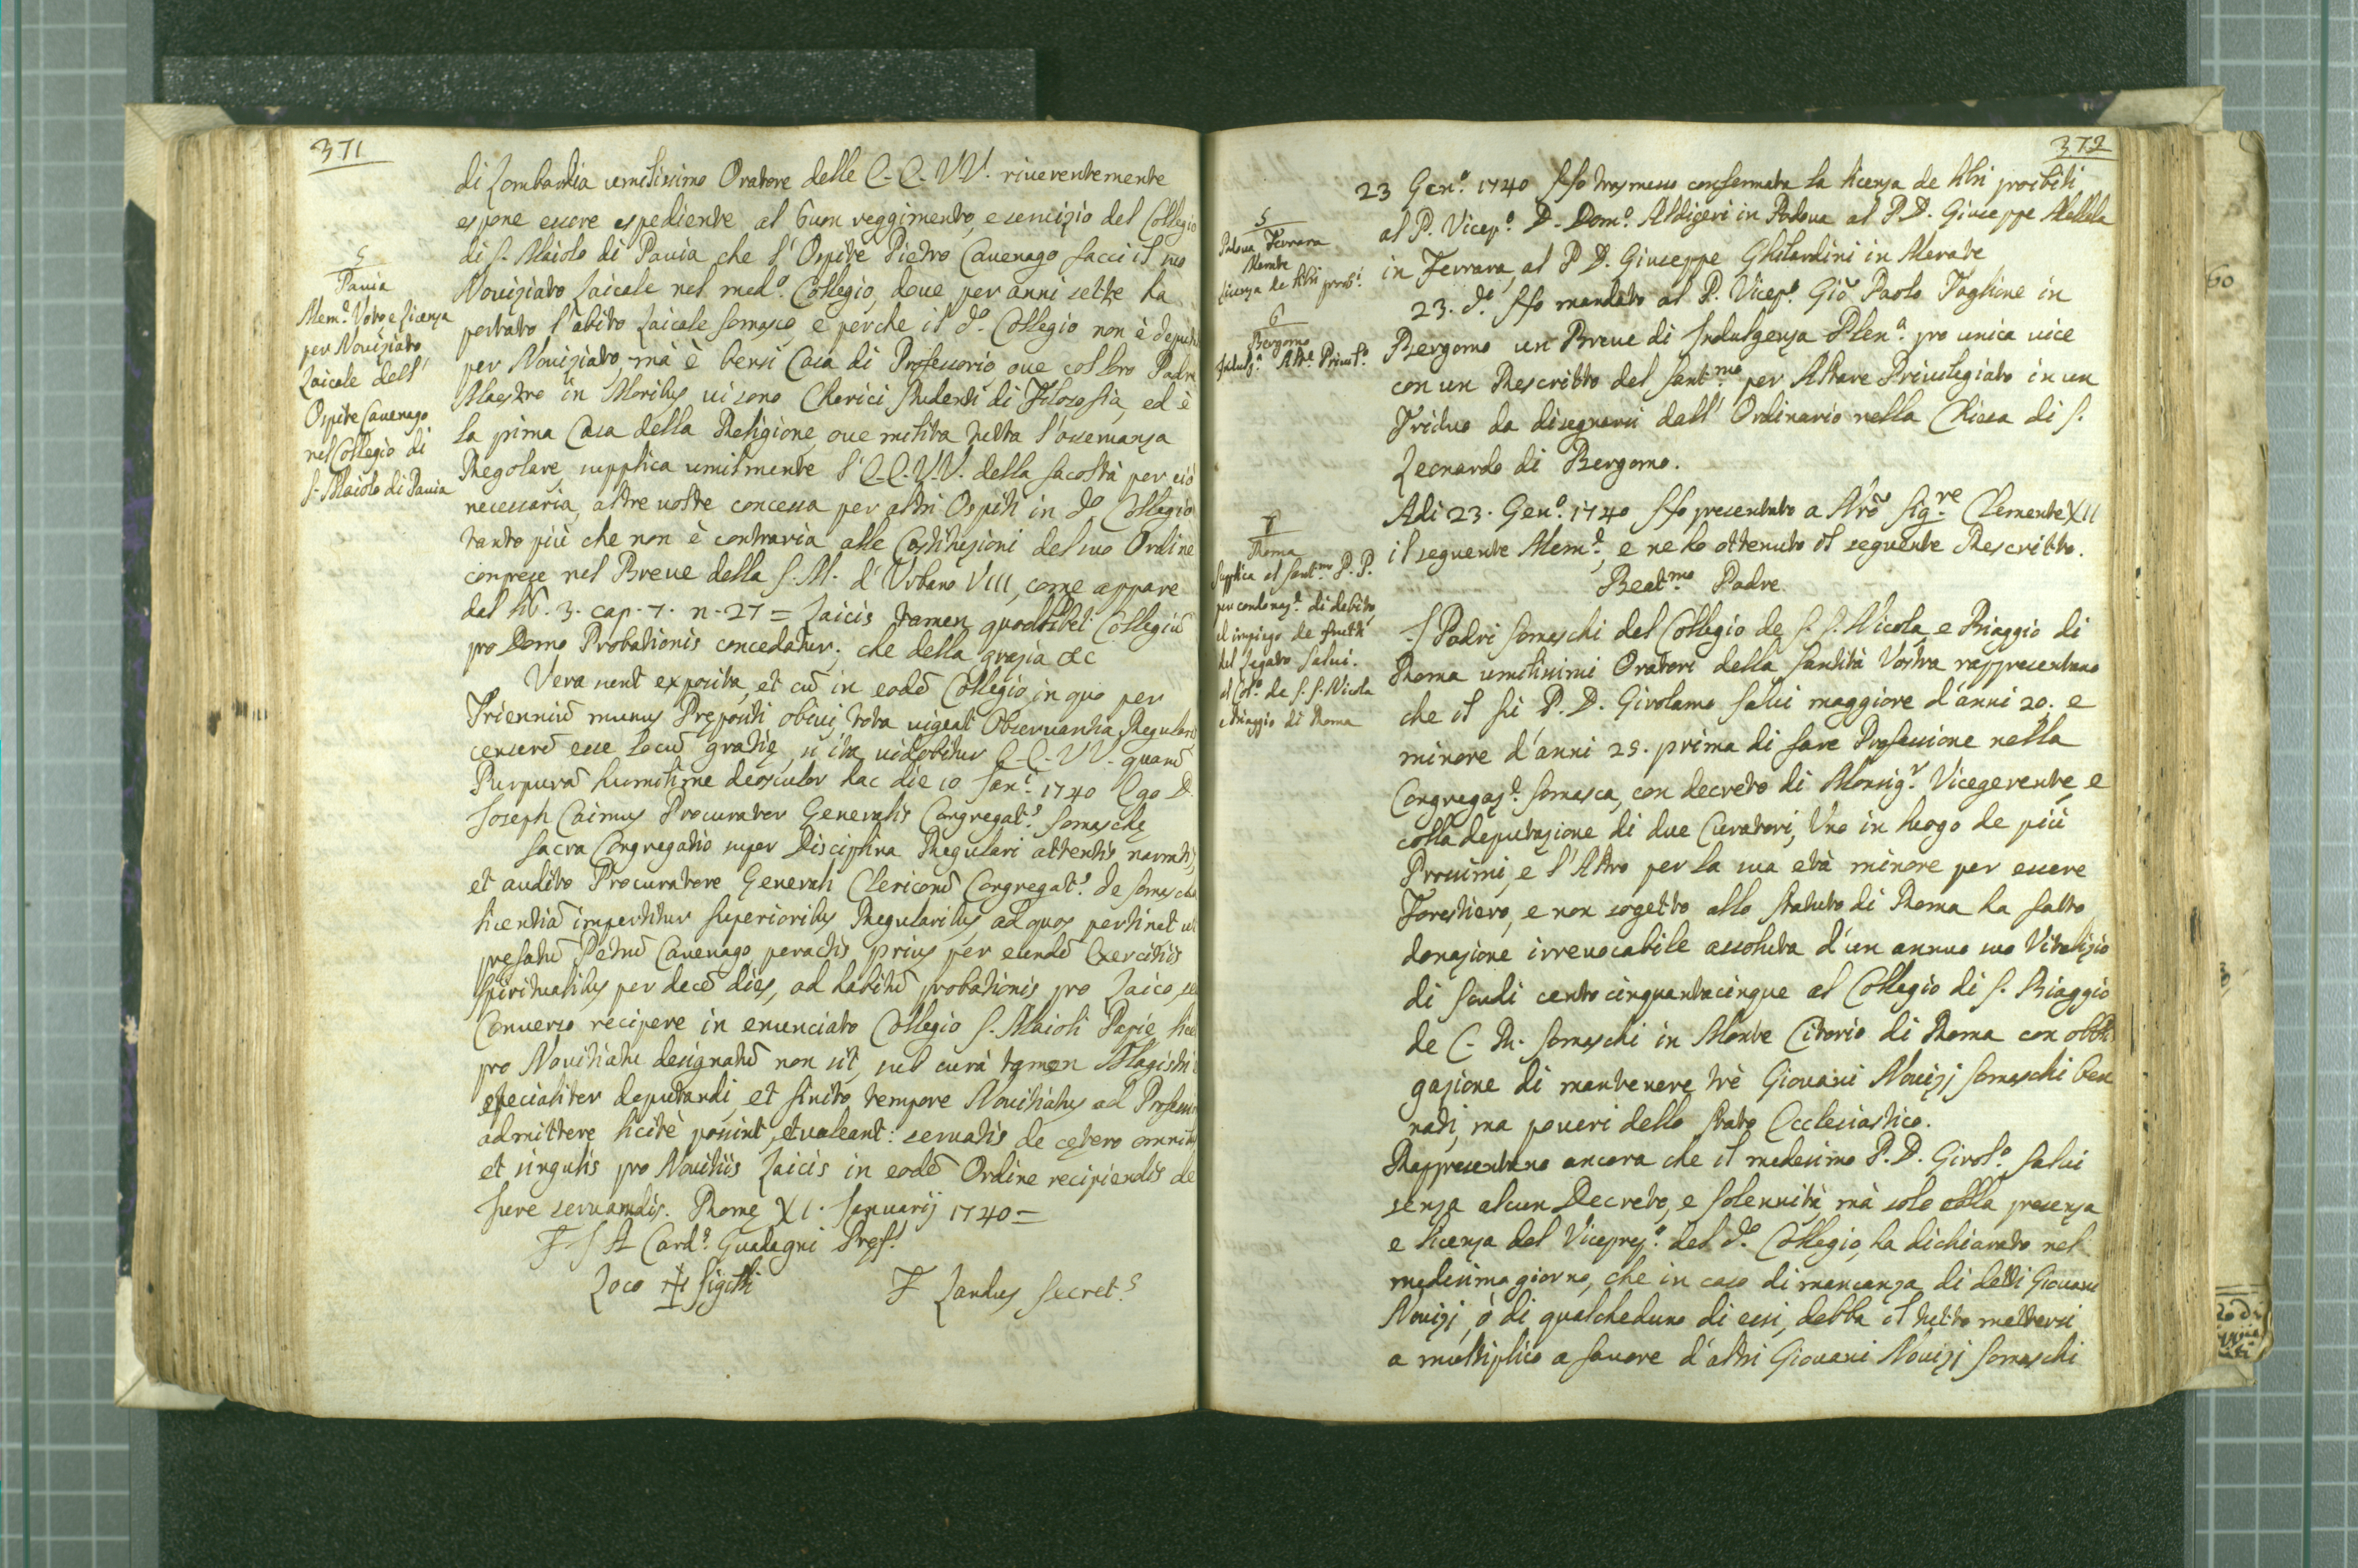 371
di Lombardia umilissimo Oratore delle E. E. VV. riverentemente
espone essere espediente al buon reggimento, e servizio del Collegio
di S. Maiolo di Pavia che l' Ospite Pietro Cavenago facci il suo
Noviziato Laicale nel medº. Collegio, dove per anni sette ha
portato l'abito Laicale Somasco, e perche il dº. Collegio non è
per Noviziato, mà è bensi Casa di Professorio ove col loro Padre
Maestro in Moribus vi sono Chierici studenti di Filosofia, ed è
la prima Casa della Religione, ove milita tutta l'osservanza
Regolare, supplica umilmente l' E. E. V.V. della facoltà per ciò
necessaria, altre volte concessa per altri Ospiti in dº Collegio
tanto più che non è contraria alle Costituzioni del suo Ordine
comprese nel Breve della S. M. d' Urbano VIII, come appare
dal lib. 3. cap. 7. n. 27 = Laicis tamen quodlibet Collegiũ
pro Domo Probationis concedatur; che della grazia &c
Vera sunt exposita, et cũ in eodẽ Collegio, in quo per
Trienniũ munus Prępositi obivi, tota vigeat Observantia Regularis
censerẽ esse locũ gratię, si ita videbitur E. E. VV. quarũ
Purpurã humilime deosculor hac die 10 Janʳ. 1740 Ego D.
Joseph Caimus Procurator Generalis Congregatˢ. Somaschę
Sacra Congregatio super Disciplina Regulari attentis narratis,
et audito Procuratore Generali Clericorũ Congregatˢ. de Somascha
licentiã impertitur Superioribus Regularibus, ad quos pertinet ut
prefatũ Petrũ Cavenago, peractis prius per eundẽ Exercitiis
Spiritualibus per decẽ dies, ad habitũ probationis pro Laico, seu
Converso recipere in enunciato Collegio S. Maioli Papię, licet
pro Novitiatu designatũ non sit, sub curà tamen Magistri
specialiter deputandi, et finito tempore Novitiatus ad Professionẽ
admittere licitè possint, et valeant: servatis de cętero omnibus
et singulis pro Novitiis Laicis in eodẽ Ordine recipiendis de
Jure servandis. Romę XI. Januarij 1740 =
F J A Cardˢ. Guadagni Pręfˢ.
Loco ✠ Sigilli F Landus Secretˢ
5
Pavia
Memˡᵉ. Voto e Licenza
per Noviziato
Laicale dell'
Ospite Cavenago
nel Collegio di
S. Maiolo di Pavia
372
23 Genº. 1740 Hò trasmesso confermata la licenza de libri proibiti
al P. Vicepº. D. Domº. Aldigeri in Padova al P. D. Giuseppe Mellela
in Ferrara, al P D. Giuseppe Ghilardini in Merate
23. dº. Hò mandato al P. Vicepº. Giõ Paolo Taglione in
Bergomo un Breve di Indulgenza Plenª. pro unica vice
con un Rescritto del Santᵐᵒ per Altare Privilegiato in un
Triduo da disegnarsi dall' Ordinario nella Chiesa di S.
Leonardo di Bergomo.
Adi 23. Genº. 1740 Hò presentato a Nrõ Sigʳᵉ Clemente XII
il seguente Memˡᵉ, e ne ho ottenuto il seguente Rescritto.
Beatᵐᵒ Padre
I Padri Somaschi del Collegio de S. S. Nicola, e Biaggio di
Roma umilissimi Oratori della Santità Vostra rappresentano
che il fù P. D. Girolamo Salvi maggiore d'anni 20. e
minore d'anni 25. prima di fare Professione nella
Congregazᵉ. Somasca, con decreto di Monsigʳ Vicegerente, e
colla deputazione di due Curatori, Uno in luogo de più
Prossimi, e l'Altro per la sua età minore per essere
Forestiero, e non sogetto allo Statuto di Roma ha fatto
donazione irrevocabile assoluta d'un annuo suo Vitalizio
di scudi cento cinquantacinque al Collegio di S. Biaggio
de C. R. Somaschi in Monte Citorio di Roma con obbli
gazione di mantenere trè Giovani Novizj Somaschi ben
nati, ma poveri dello Stato Ecclesiastico.
Rappresentano ancora che il medesimo P. D. Girolº. Salvi
senza alcun Decreto, e solennità, mà solo colla presenza
e licenza del Vicepręº. del dº. Collegio, ha dichiarato nel
medesimo giorno, che in caso di mancanza di detti Giovani
Novizj, ò di qualcheduno di essi, debba il tutto mettersi
a multiplico a favore d'altri Giovani Novizj Somaschi
5
Padova Ferrara
Merate
Licenza de libri proibˡ.
6
Bergomo
Indulgª. Altᵉ. Privilº.
7
Roma
Supplica al Santᵐᵒ P. P.
per condonazᵉ. di debito,
ed impiego de frutti
del Legato Salvi.
al Colº. de S. S. Nicola
e Biaggio di Roma
60